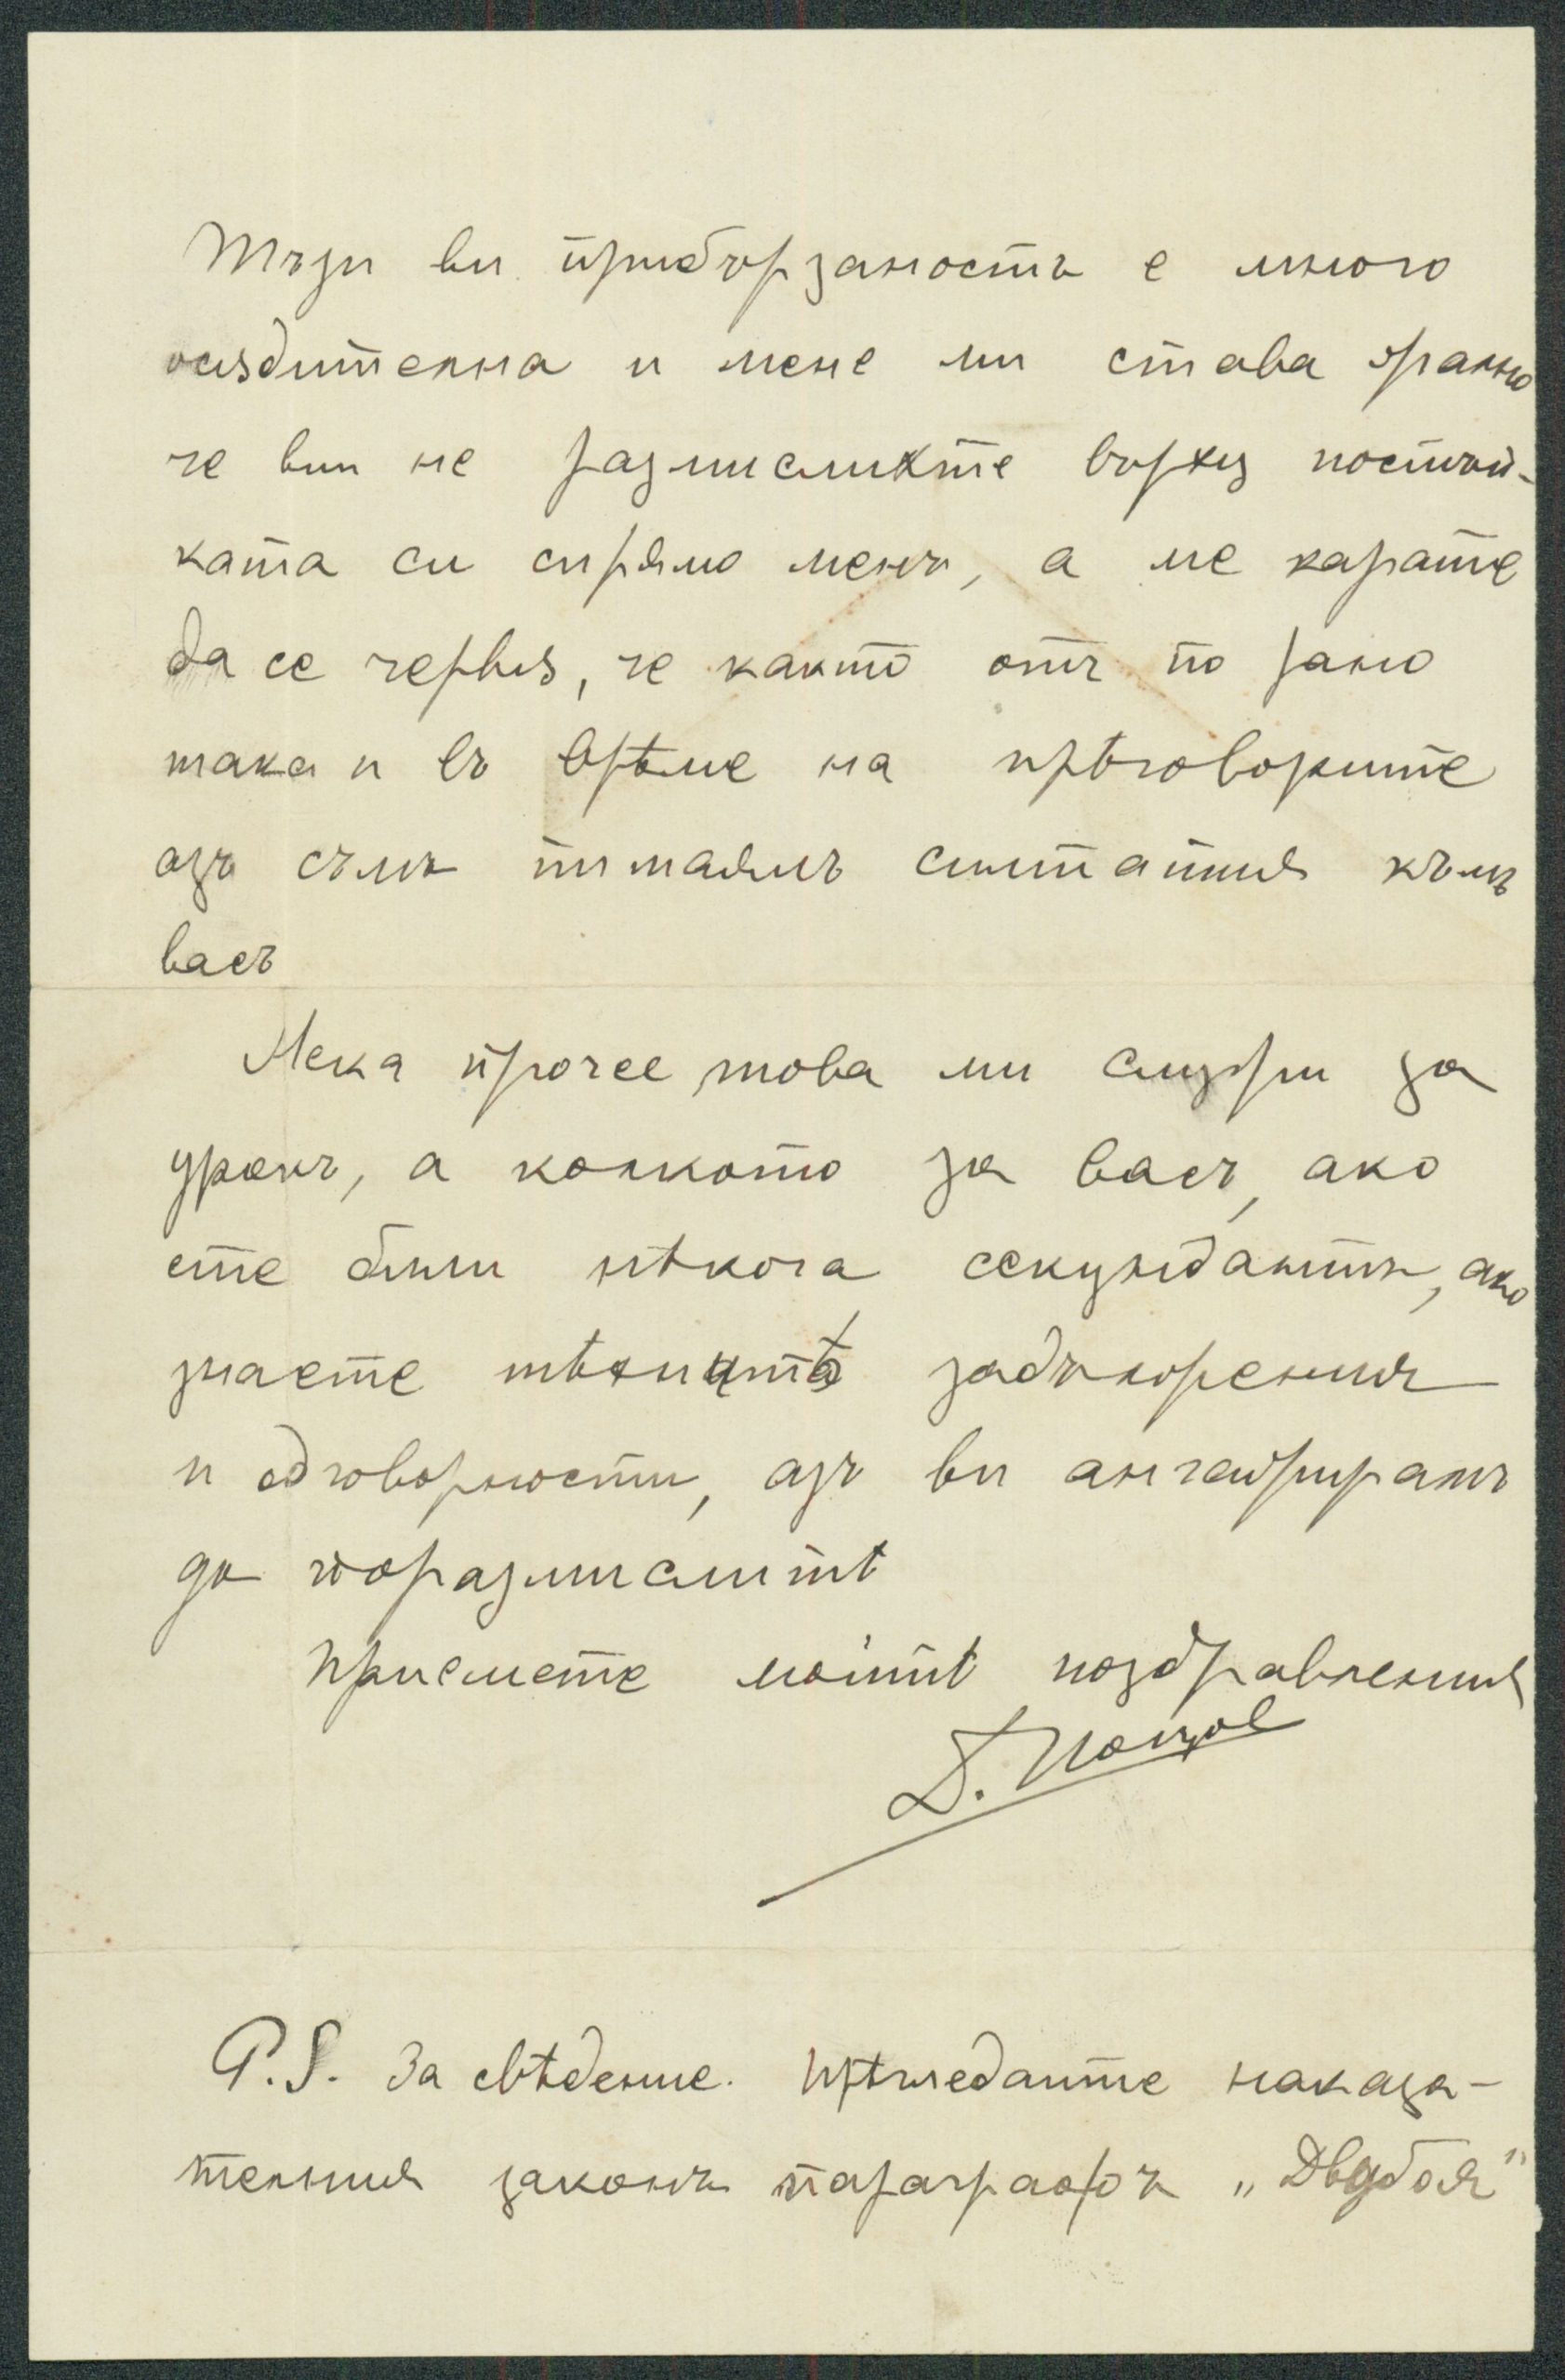 Тъзи ви прибързаность е много
осѫдителна и мене ми става жално
че вий не размислихте върху постъп-
ката си спрямо менъ, а ме карате
да се червѭ, че както отъ по рано
така и въ врѣме на прѣговорите
азъ съмъ питаялъ симпатия къмъ
васъ
Нека прочее това ми служи за
урокъ, а колкото за васъ, ако
сте били нѣкога секундантъ, ако
знаете тѣхнитѣ задължения
и одговорности, азъ ви ангажирамъ
да поразмислитѣ
Приемете моитѣ поздравления
Д. Попов
P.S. За свѣдение. Прѣгледайте наказа-
телния законъ параграфъ „Двубоя"